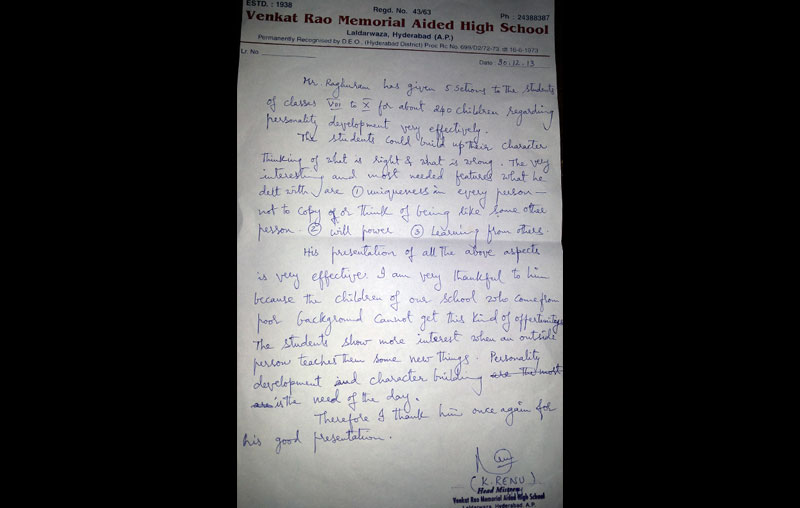 ESTD. : 1938
Regd. No. 43/63
Ph : 24388387
Venkat Rao Memorial Aided High School
Laldarwaza, Hyderabad (A.P.)
Permanently Recognised by D.E.O., (Hyderabad District) Proc Rc No. 699/D2/72-73 dt 16-6-1973
Lr. No.
Date 30.12.13
Mr. Raghuram has given 5 Setions to the students
of classes VIII to X for about 240 children regarding
personality development very effectively.
The students could build up their character
thinking of what is right & what is wrong. The very
interesting and most needed features what he
delt with are ① uniqueness in every person —
not to copy of or think of being like some other
person. ② will power ③ Learning from others.
His presentation of all the above aspects
is very effective. I am very thankful to him
because the children of our school who come from
poor background cannot get this kind of
The students show more interest when an outside
person teaches them some new things. Personality
development and character building are the most
are is the need of the day.
Therefore I thank him once again for
his good presentation.
(K. RENU)
Head Mistress
Venkat Rao Memorial Aided High School
Laldarwaza, Hyderabad A.P.